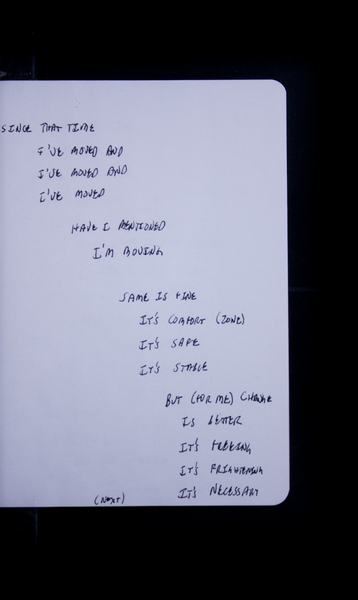 SINCE THAT TIME
I'VE MOVED AND
I'VE MOVED AND
I'VE MOVED
HAVE I MENTIONED
I'M MOVING
SAME IS FINE
IT'S COMFORT (ZONE)
IT'S SAFE
IT'S STABLE
BUT (FOR ME) CHANGE
IS BETTER
IT'S FREEING
IT'S FRIGHTENING
IT'S NECESSARY
(NEXT)